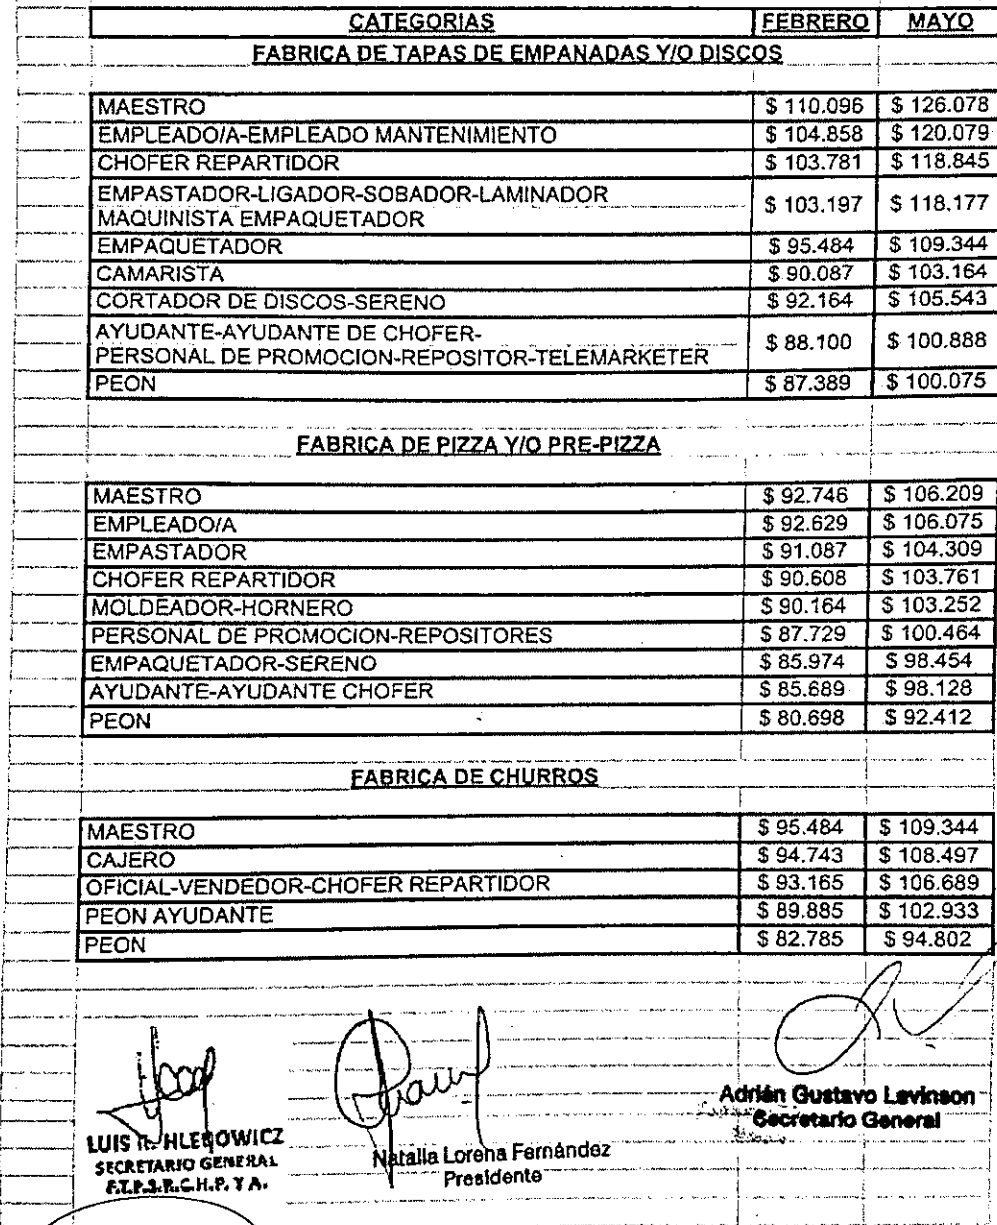 CATEGORIAS FEBRERO MAYO
FABRICA DE TAPAS DE EMPANADAS Y/O DISCOS
MAESTRO $ 110.096 $ 126.078
EMPLEADO/A-EMPLEADO MANTENIMIENTO $ 104.858 $ 120.079
CHOFER REPARTIDOR $ 103.781 $ 118.845
EMPASTADOR-LIGADOR-SOBADOR-LAMINADOR
MAQUINISTA EMPAQUETADOR $ 103.197 $ 118.177
EMPAQUETADOR $ 95.484 $ 109.344
CAMARISTA $ 90.087 $ 103.164
CORTADOR DE DISCOS-SERENO $ 92.164 $ 105.543
AYUDANTE-AYUDANTE DE CHOFER-
PERSONAL DE PROMOCION-REPOSITOR-TELEMARKETER $ 88.100 $ 100.888
PEON $ 87.389 $ 100.075
FABRICA DE PIZZA Y/O PRE-PIZZA
MAESTRO $ 92.746 $ 106.209
EMPLEADO/A $ 92.629 $ 106.075
EMPASTADOR $ 91.087 $ 104.309
CHOFER REPARTIDOR $ 90.608 $ 103.761
MOLDEADOR-HORNERO $ 90.164 $ 103.252
PERSONAL DE PROMOCION-REPOSITORES $ 87.729 $ 100.464
EMPAQUETADOR-SERENO $ 85.974 $ 98.454
AYUDANTE-AYUDANTE CHOFER $ 85.689 $ 98.128
PEON $ 80.698 $ 92.412
FABRICA DE CHURROS
MAESTRO $ 95.484 $ 109.344
CAJERO $ 94.743 $ 108.497
OFICIAL-VENDEDOR-CHOFER REPARTIDOR $ 93.165 $ 106.689
PEON AYUDANTE $ 89.885 $ 102.933
PEON $ 82.785 $ 94.802
LUIS R. HLEBOWICZ
SECRETARIO GENERAL
F.T.P.S.R.C.H.P. Y A.
Natalia Lorena Fernández
Presidente
Adrián Gustavo Levinson
Secretario General